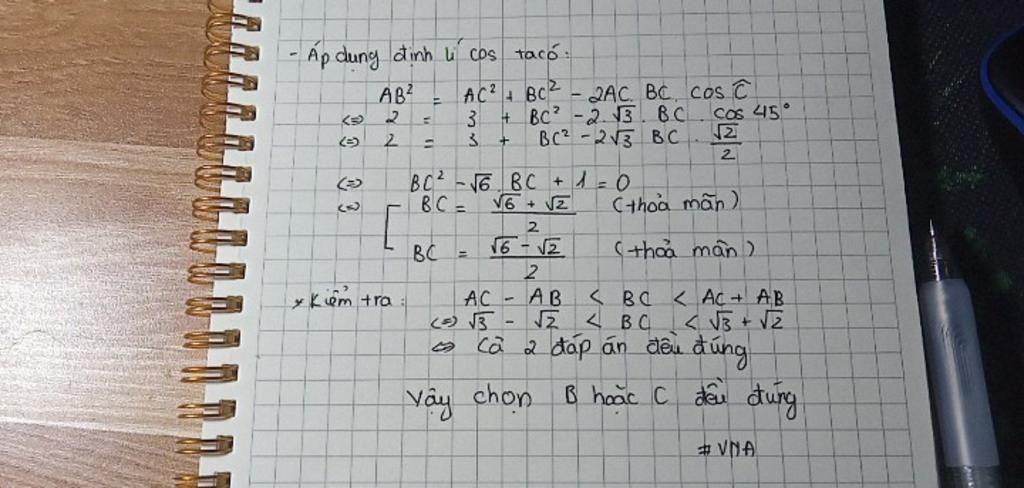 - Áp dụng định lí cos ta có:
AB² = AC² + BC² - 2AC BC. cos Ĉ
<=> 2 = 3 + BC² - 2.√3. BC. cos 45°
<=> 2 = 3 + BC² - 2√3 BC. √2/2
<=> BC² - √6.BC + 1 = 0
<=> [ BC = (√6 + √2)/2 (thoả mãn)
BC = (√6 - √2)/2 (thoả mãn)
* Kiểm tra: AC - AB < BC < AC + AB
<=> √3 - √2 < BC < √3 + √2
<=> Cả 2 đáp án đều đúng
Vậy chọn B hoặc C đều đúng
# VNA